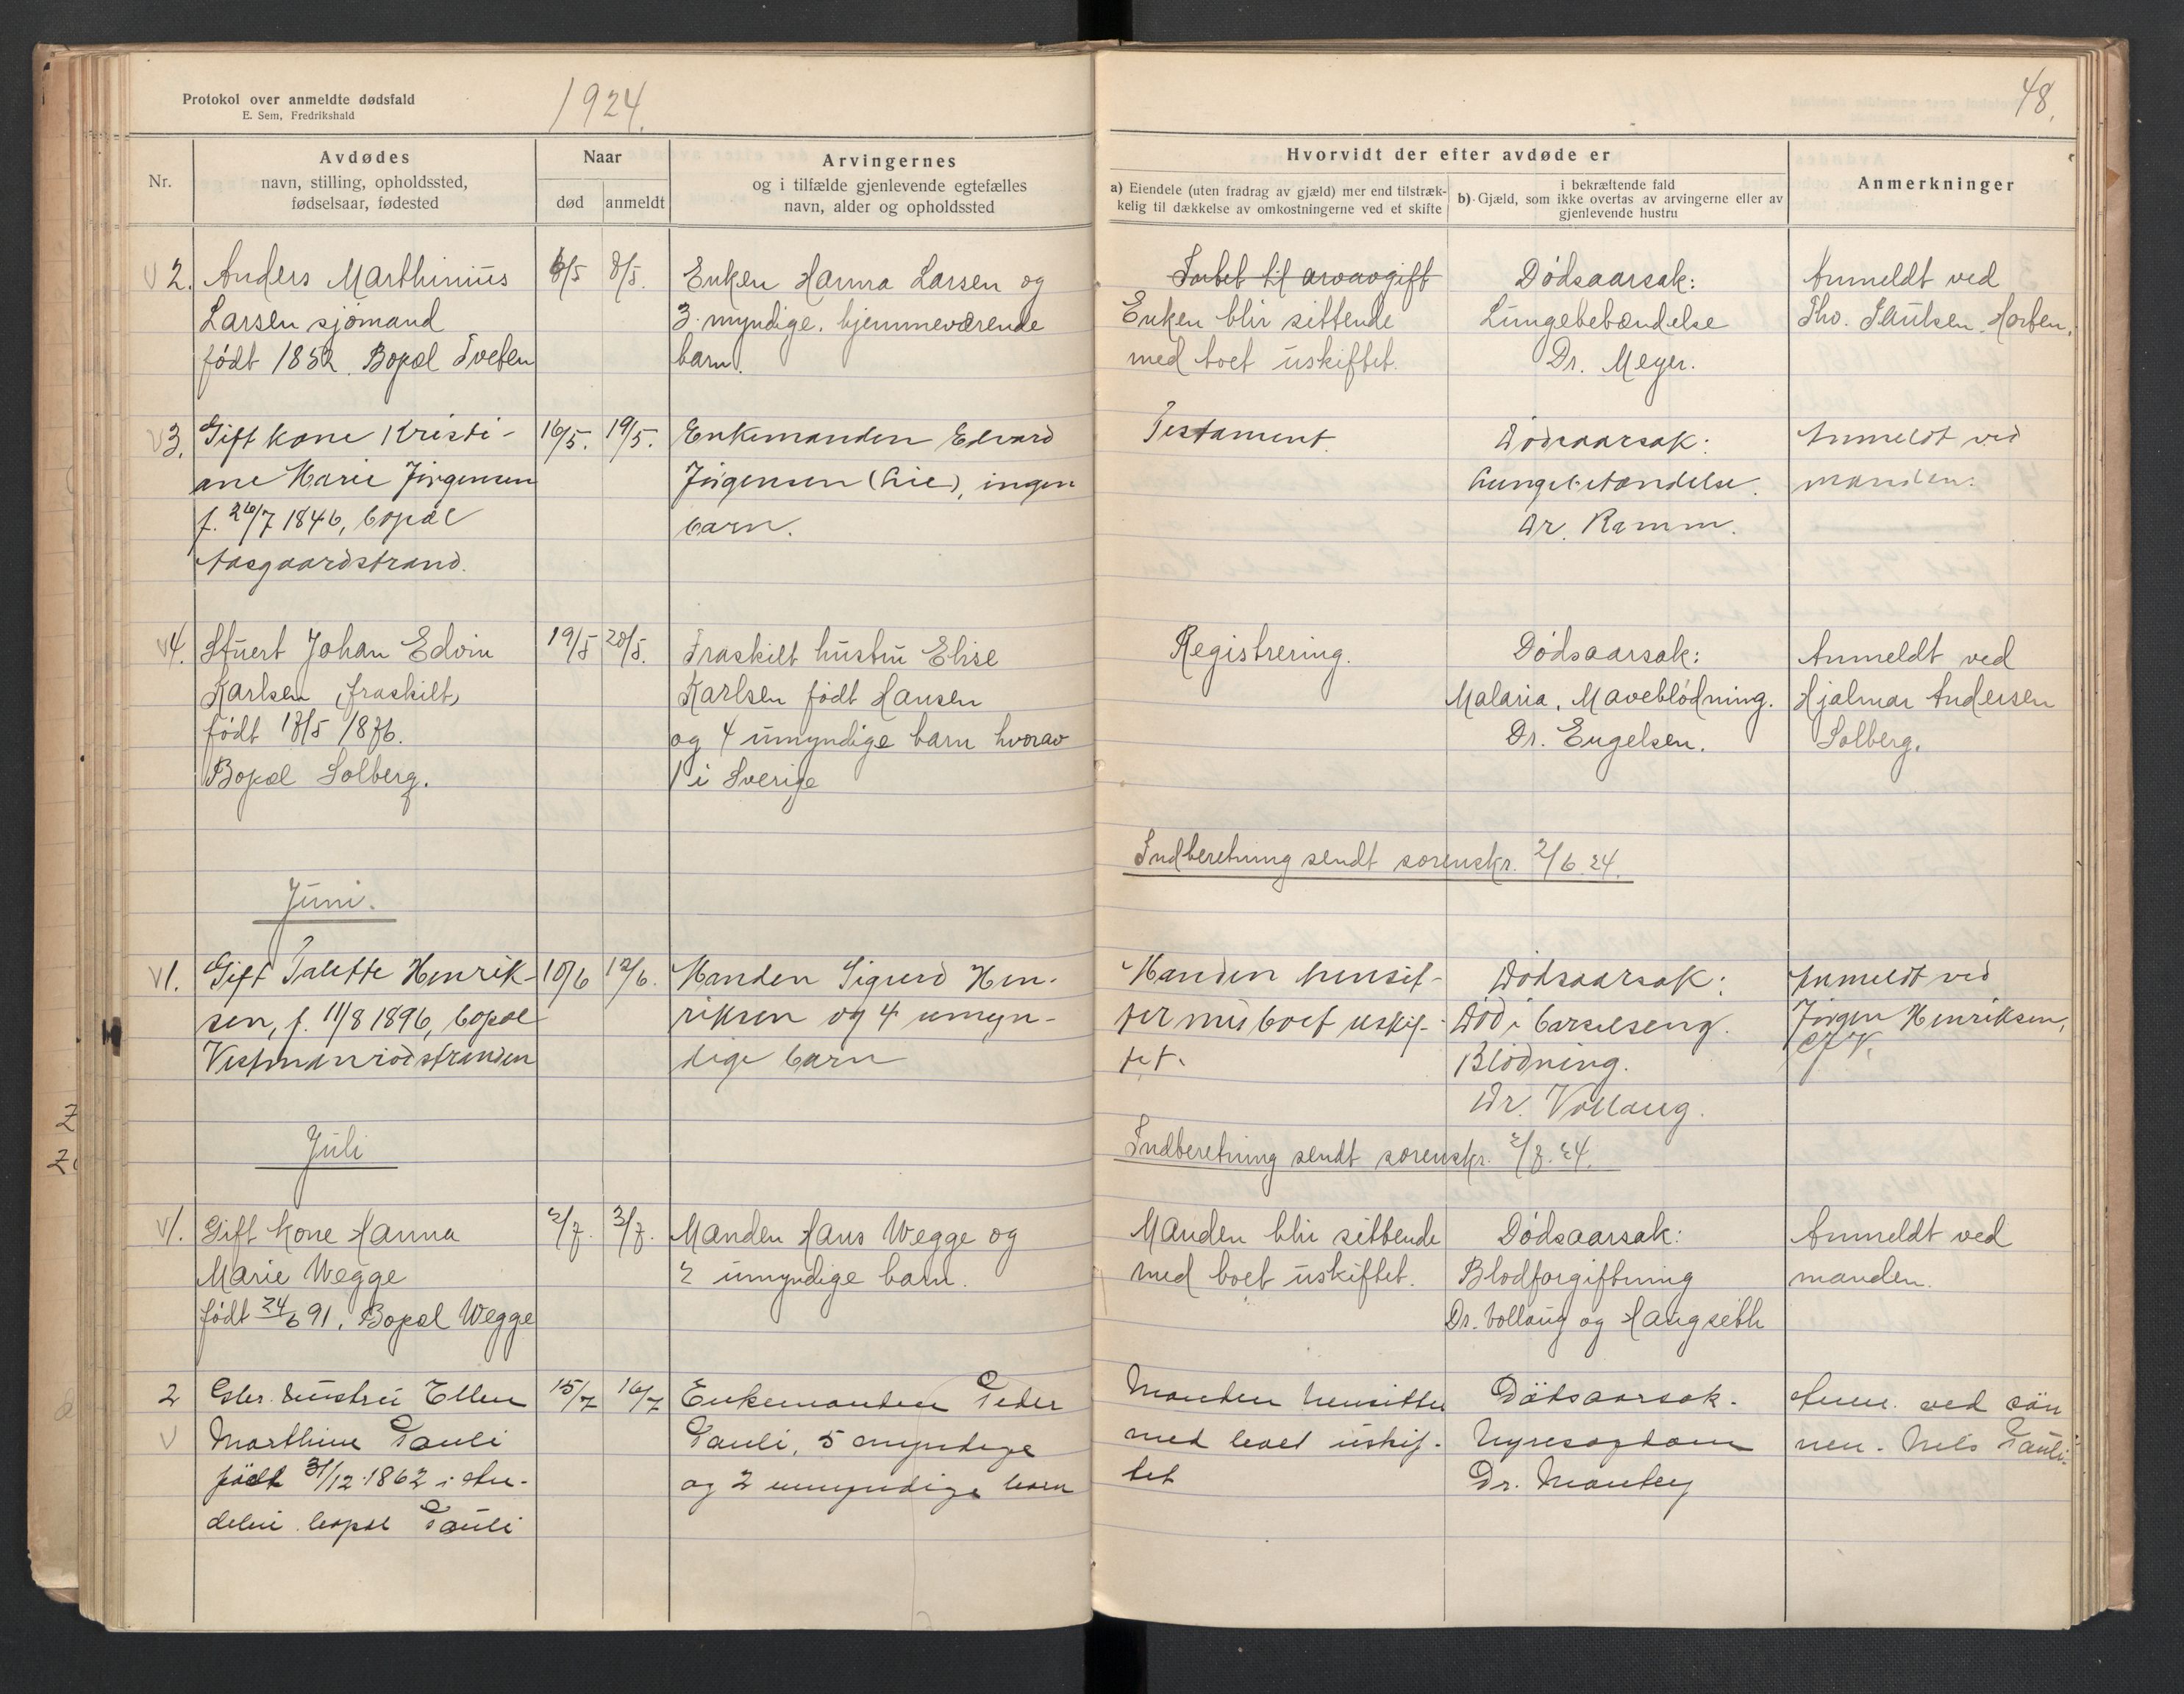 Protokol over anmeldte dødsfald
E. Sem, Fredrikshald
1924.
48.
Nr.
Avdødes
navn, stilling, opholdssted,
fødselsaar, fødested
Naar
død
anmeldt
Arvingernes
og i tilfælde gjenlevende egtefælles
navn, alder og opholdssted
Hvorvidt der efter avdøde er
a) Eiendele (uten fradrag av gjæld) mer end tilstræk-
kelig til dækkelse av omkostningerne ved et skifte
i bekræftende fald
b) Gjæld, som ikke overtas av arvingerne eller av
gjenlevende hustru
Anmerkninger
2.
Anders Marthinius
Larsen sjømand
født 1852. Bopæl Tveten
6/5
8/5.
Enken Hanna Larsen og
3 myndige, hjemmeværende
barn.
Intet til arvavgift
Enken blir sittende
med boet uskiftet.
Dødsaarsak:
Lungebetændelse
Dr. Meyer.
Anmeldt ved
Tho. Paulsen, Horten.
3.
Gift kone Kristi-
ane Marie Jørgensen
f. 26/7 1846, bopæl
Aasgaardstrand.
16/5.
19/5.
Enkemanden Edvard
Jørgensen (Lie), ingen
barn.
Testament.
Dødsaarsak:
Lungebetændelse.
Dr. Ramm.
Anmeldt ved
manden.
4.
Stuert Johan Edvin
Karlsen, fraskilt,
født 17/5 1876.
Bopæl Solberg.
19/5
20/5.
Fraskilt hustru Elise
Karlsen født Hansen
og 4 umyndige barn hvorav
1 i Sverige
Registrering.
Dødsaarsak:
Malaria, Maveblødning.
Dr. Engelsen.
Anmeldt ved
Hjalmar Andersen
Solberg.
Indberetning sendt sorenskr. 2/6 24.
Juni.
1.
Gift Talette Henrik-
sen, f. 11/8 1896, bopæl
Vestmanrødstranden
10/6
12/6.
Manden Sigurd Hen-
riksen og 4 umyn-
dige barn
Manden hensit-
ter mu boet uskif-
tet.
Dødsaarsak:
Død i barselseng.
Blødning.
Dr. Vollaug.
Anmeldt ved
Jørgen Henriksen,
Juli
Indberetning sendt sorenskr. 2/7. 24.
1.
Gift kone Hanna
Marie Wegge
født 24/6 91. Bopæl Wegge
2/7.
3/7.
Manden Hans Wegge og
2 umyndige barn.
Manden blir sittende
med boet uskiftet.
Dødsaarsak:
Blodforgiftning
Dr. Vollaug og Haugseth
Anmeldt ved
manden.
2
hustru Ellen
Marthine Pauli
født 31/12 1862 i
bopæl Pauli
15/7
16/7
Enkemanden Peder
Pauli, 5 myndige
og 2 umyndige barn
Manden hensitter
med boet uskif-
tet
Dødsaarsak.
Nyresygdom
Dr. Manthey
Anm. ved søn
nen. Nils Pauli.